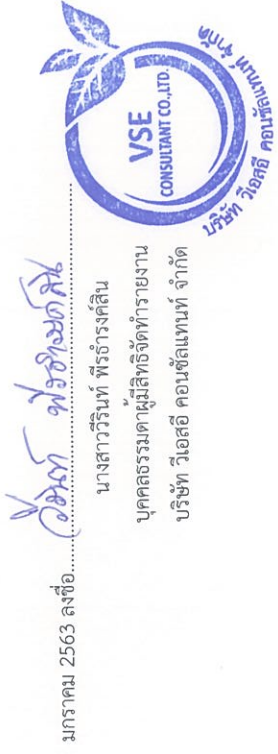 มกราคม 2563 ลงชื่อ........................................
นางสาววีรินท์ พีรธำรงค์สิน
บุคคลธรรมดาผู้มีสิทธิจัดทำรายงาน
บริษัท วีเอสอี คอนซัลแทนท์ จำกัด
VSE
CONSULTANT CO.,LTD.
บริษัท วีเอสอี คอนซัลแทนท์ จำกัด